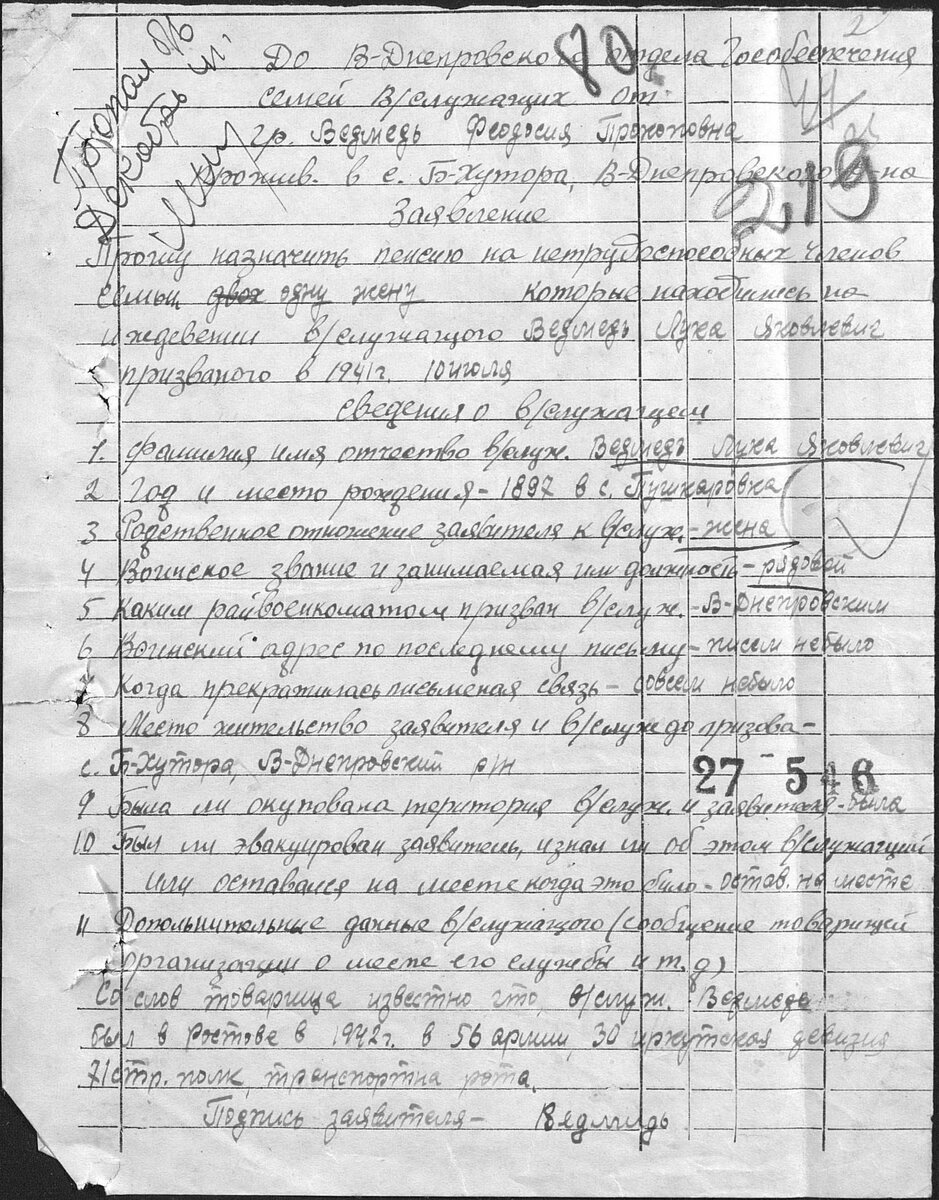 2
80
До В-Днепровского отдела Гособеспечения
семей в/служащих от
гр. Ведмедь Феодосия Прокоповна
Прожив. в с. Б-Хутора, В-Днепровского р-на
219
Заявление
Прошу назначить пенсию на нетрудоспособных членов
семьи двох одну жену которые находились на
иждевении в/служащого Ведмедь Лука Яковлевич
призваного в 1941г. 10 июля
сведения о в/служащем
1. Фамилия имя отчество в/служ. Ведмедь Лука Яковлевич
2 Год и место рождения - 1897 в с. Пушкаровка
3 Родственное отношение заявителя к в/служ. - жена
4 Воинское звание и занимаемая им должность - рядовой
5 Каким райвоенкоматом призван в/служ. - В-Днепровским
6 Воинский адрес по последнему письму - писем небыло
Когда прекратилась письменая связь - совсем небыло
8 Место жительство заявителя и в/служ до призова -
с. Б-Хутора, В-Днепровский р/н
27 5 46
9 Была ли окупована територия в/служ. и заявителя - была
10 Был ли эвакуирован заявитель, и знал ли об этом в/служащий
или оставался на месте когда это было - остав. на месте
11 Дополнительные данные в/служащого (сообщение товарищей
организации о месте его службы и т. д)
Со слов товарища известно что в/служ. Ведмедь
был в Ростове в 1942г. в 56 армии 30 иркутская девизия
71 стр. полк, транспортна рота.
Подпись заявителя - Ведмидь